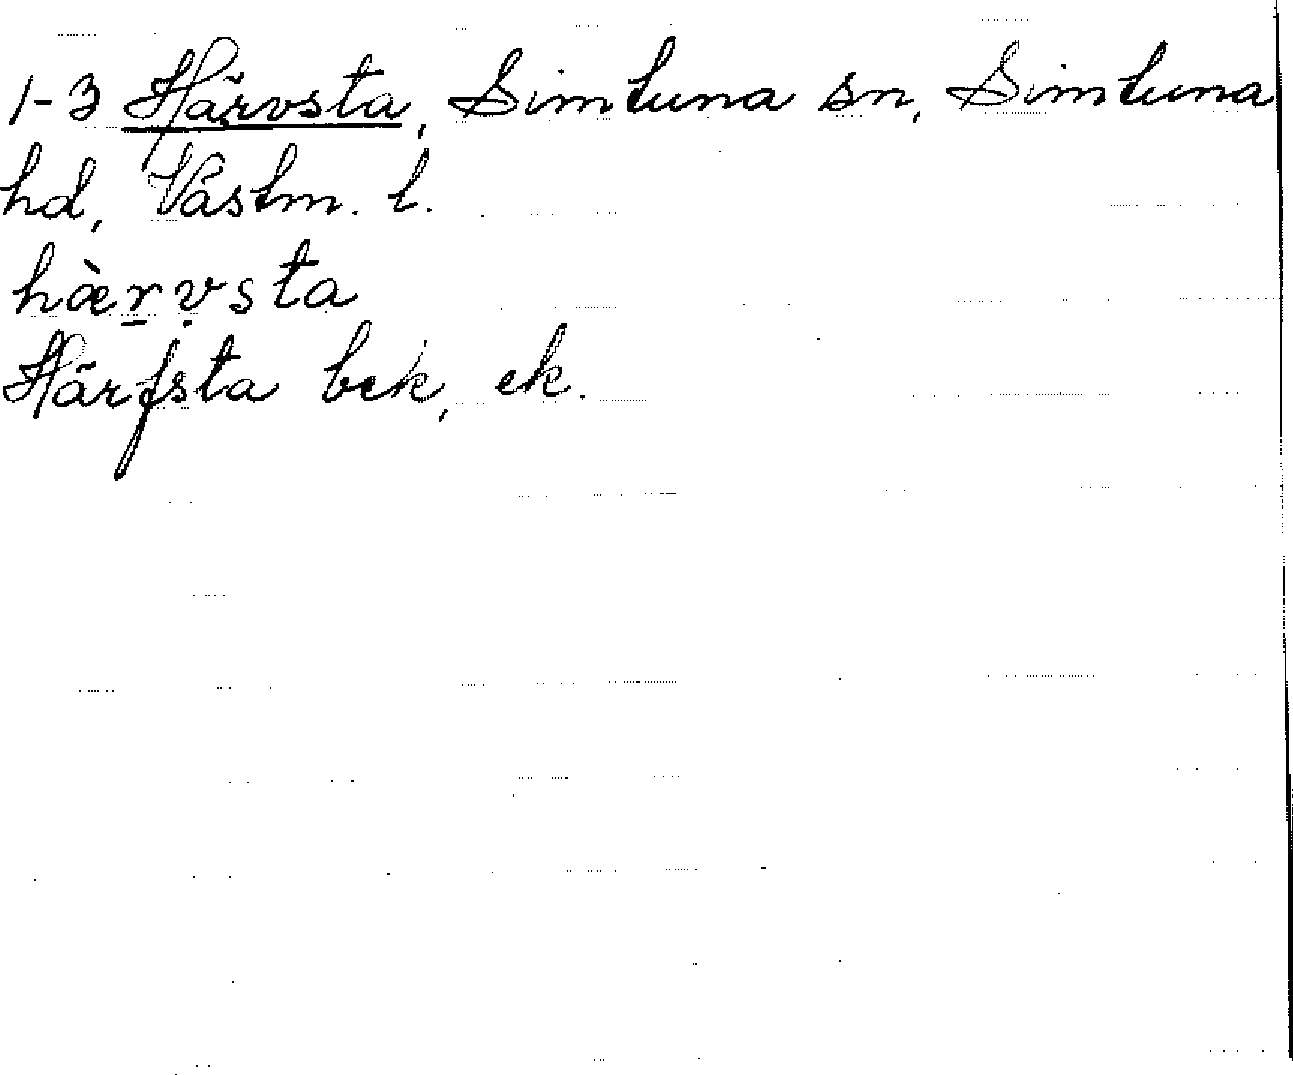 1-3 Härvsta, Simtuna sn, Simtuna
hd, Västm. l.
hæ̀ṟṿsta
Härfsta bek, ek.